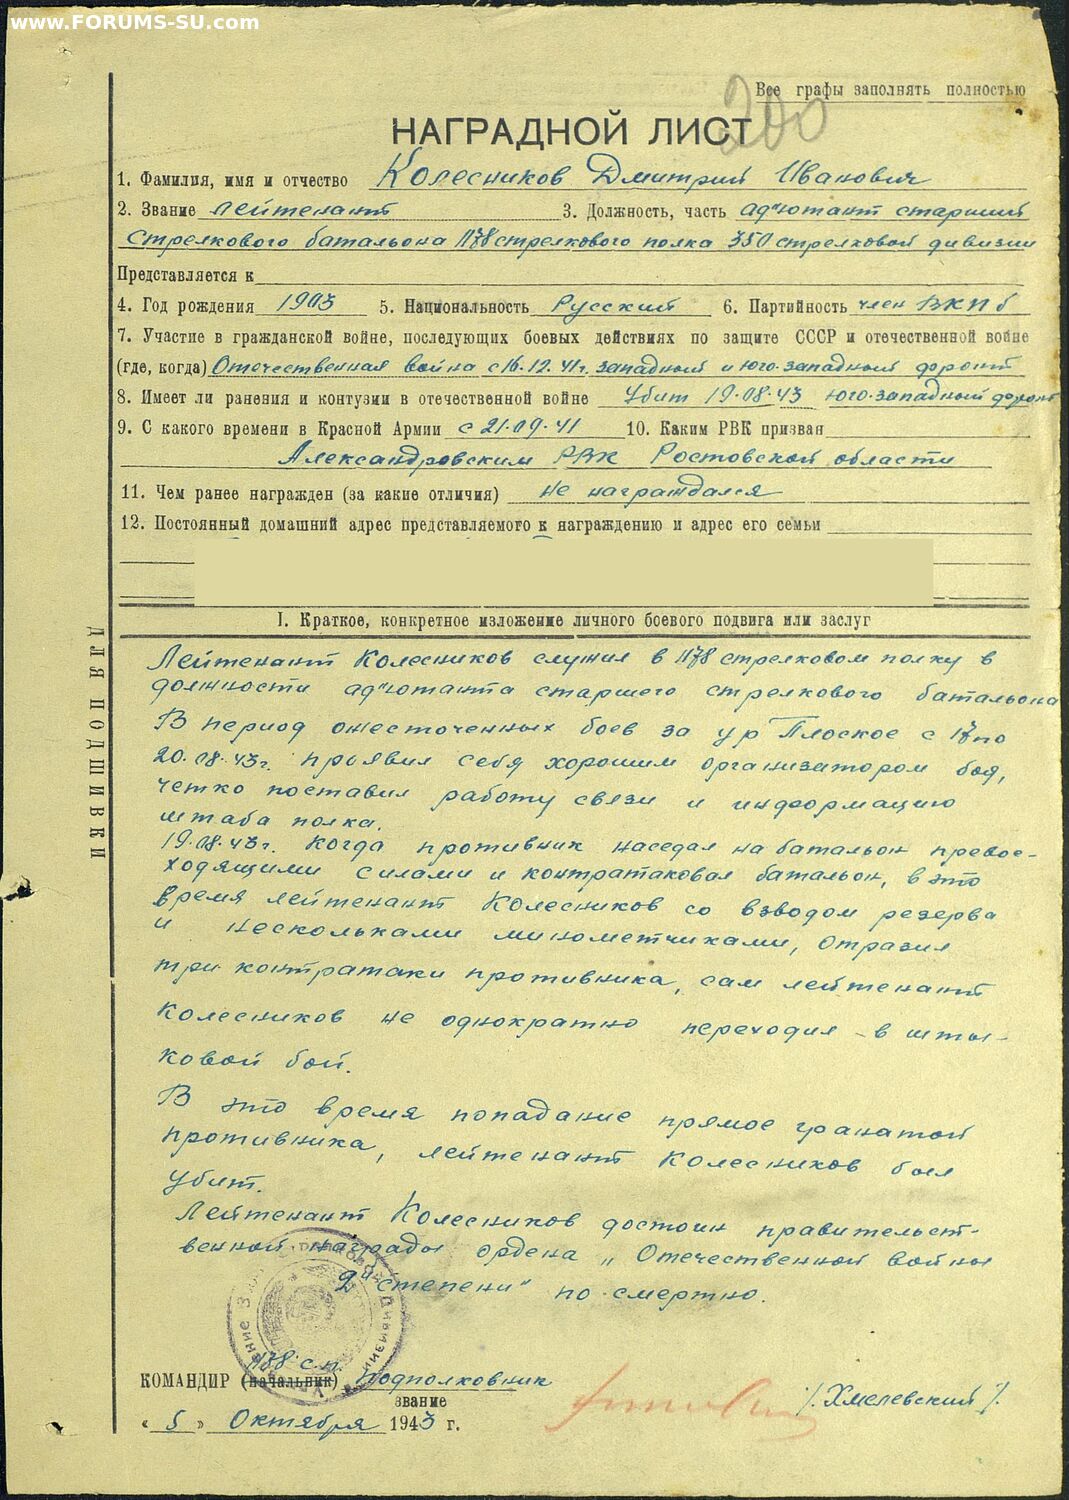 www.FORUMS-SU.com
Все графы заполнять полностью
200
НАГРАДНОЙ ЛИСТ
1. Фамилия, имя и отчество Колесников Дмитрий Иванович
2. Звание лейтенант 3. Должность, часть ад"ютант старший
стрелкового батальона 1178 стрелкового полка 350 стрелковой дивизии
Представляется к
4. Год рождения 1903 5. Национальность Русский 6. Партийность член ВКПб
7. Участие в гражданской войне, последующих боевых действиях по защите СССР и отечественной войне
(где, когда) Отечественная война с 16.12.41г. западный и юго-западный фронт
8. Имеет ли ранения и контузии в отечественной войне Убит 19.08.43 юго-западный фронт
9. С какого времени в Красной Армии с 21.09.41 10. Каким РВК призван
Александровским РВК Ростовской области
11. Чем ранее награжден (за какие отличия) не награждался
12. Постоянный домашний адрес представляемого к награждению и адрес его семьи
I. Краткое, конкретное изложение личного боевого подвига или заслуг
ДЛЯ ПОДШИВКИ
Лейтенант Колесников служил в 1178 стрелковом полку в
должности ад"ютанта старшего стрелкового батальона
В период ожесточенных боев за ур Плоское с 17 по
20.08.43г. проявил себя хорошим организатором боя,
четко поставил работу связи и информацию
штаба полка.
19.08.43г. Когда противник наседал на батальон превос-
ходящими силами и контратаковал батальон, в это
время лейтенант Колесников со взводом резерва
и нескольками минометчиками, отразил
три контратаки противника, сам лейтенант
Колесников не однократно переходил в шты-
ковой бой.
В это время попадание прямое гранатой
противника, лейтенант Колесников был
убит.
Лейтенант Колесников достоин правительст-
венной награды ордена „Отечественной войны
2й степени" по смертно.
КОМАНДИР (начальник) 1178 с.п. Подполковник /Хмелевский/
звание
„ 5 " Октября 1943 г.